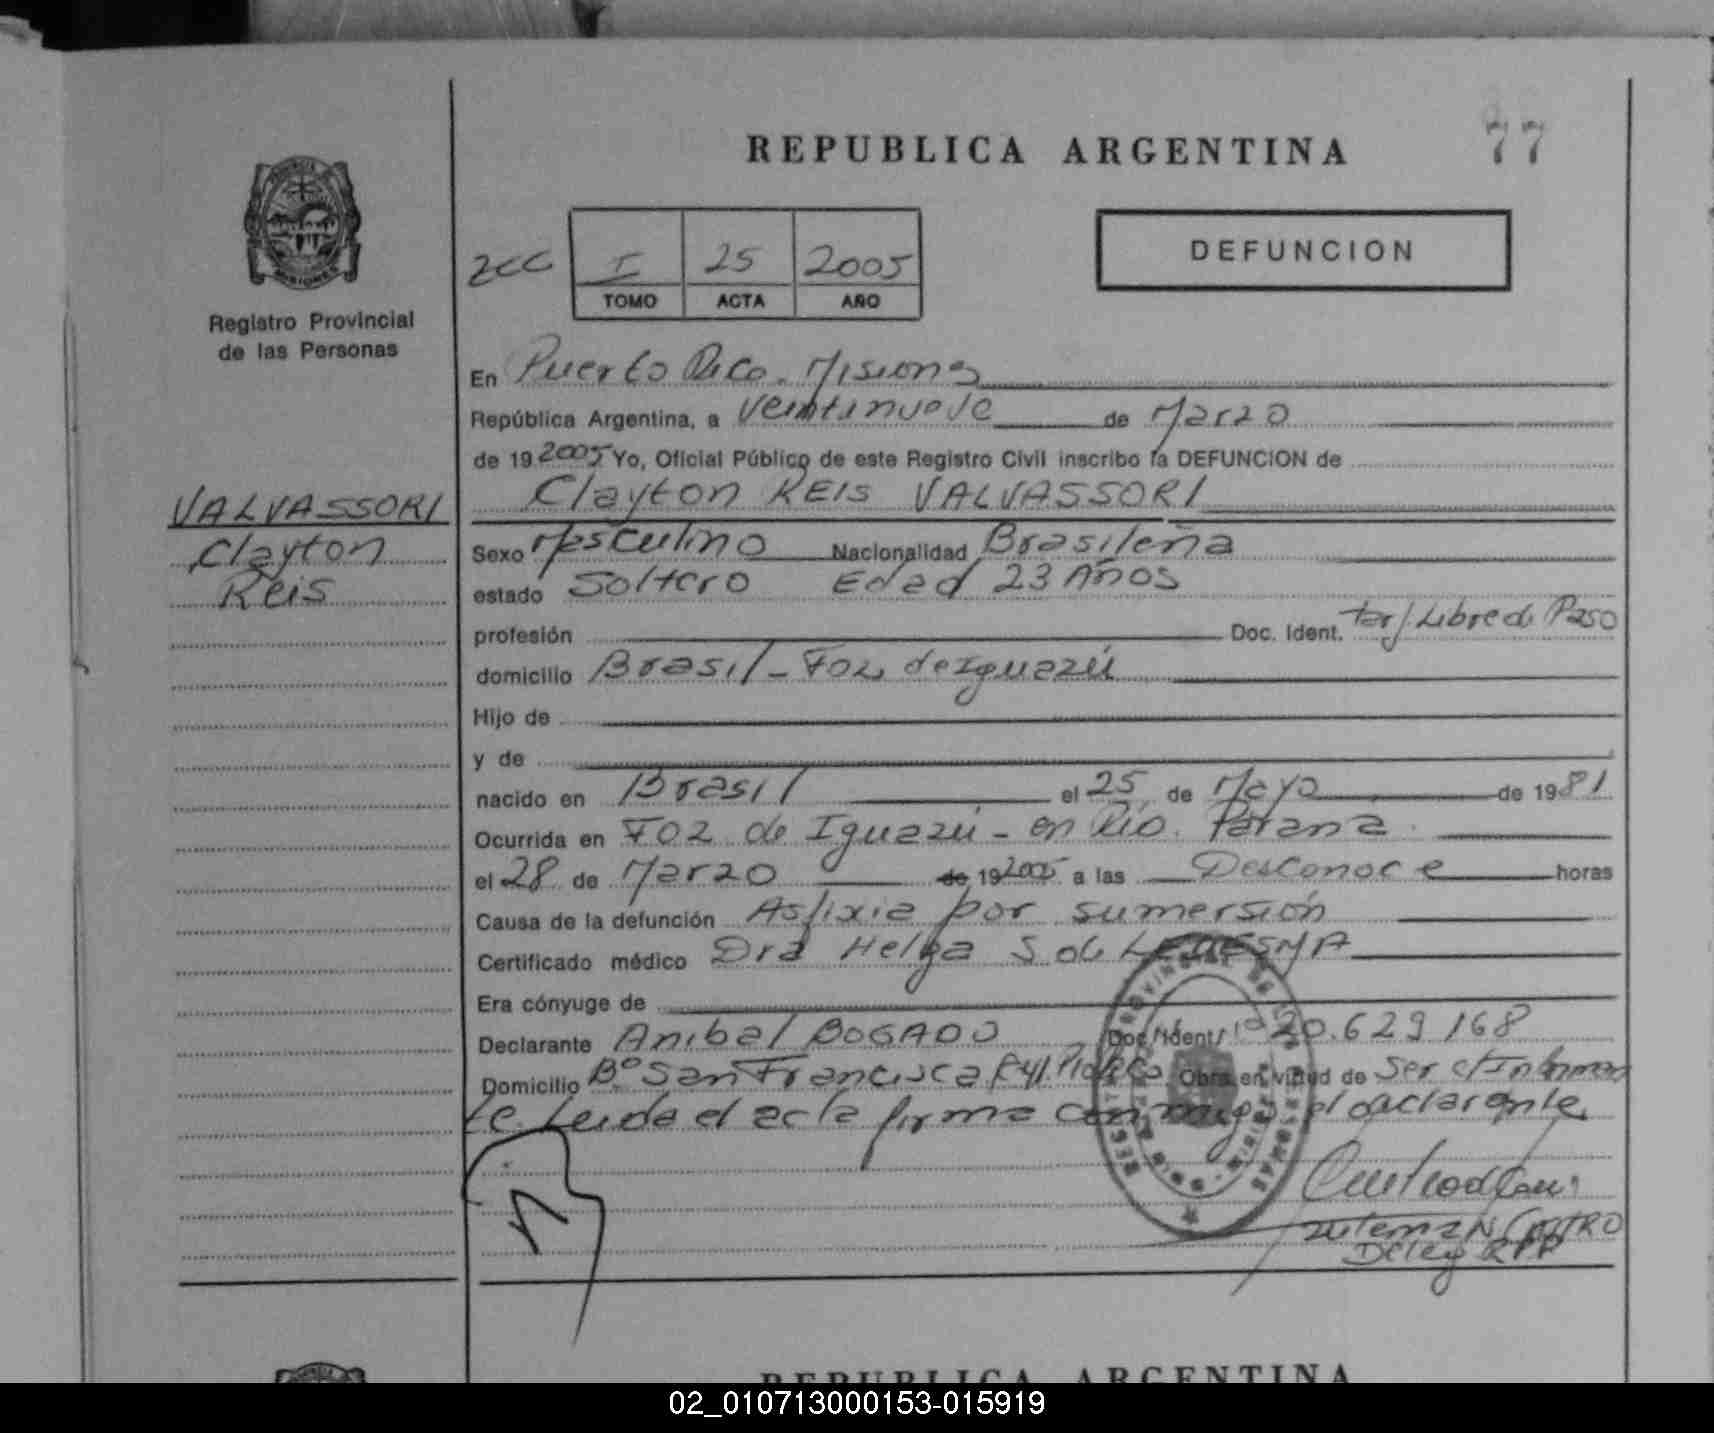 REPUBLICA ARGENTINA
77
DEFUNCION
I 25 2005
TOMO ACTA AÑO
Registro Provincial
de las Personas
En Puerto Rico. Misiones
República Argentina, a veintinueve de Marzo
de 19 2005 Yo, Oficial Público de este Registro Civil inscribo la DEFUNCION de
Clayton REIS VALVASSORI
VALVASSORI
Clayton
Reis
Sexo Masculino Nacionalidad Brasileña
estado Soltero Edad 23 Años
profesión Doc. Ident. tarj. Libre de Paso
domicilio Brasil - Foz de Iguazú
Hijo de
y de
nacido en Brasil el 25 de Mayo de 1981
Ocurrida en Foz de Iguazú - en Río. Paraná
el 28 de Marzo de 19 2005 a las Desconoce horas
Causa de la defunción Asfixia por sumersión
Certificado médico Dra Helga S de LEDESMA
Era cónyuge de
Declarante Anibal BOGADO Doc. Ident. 20.629168
Domicilio Bº San Francisco Obra en virtud de ser el Informan
te. Leida el acta firma conmigo el declarante
CASTRO
Deleg RPP
REPUBLICA ARGENTINA
02_010713000153-015919